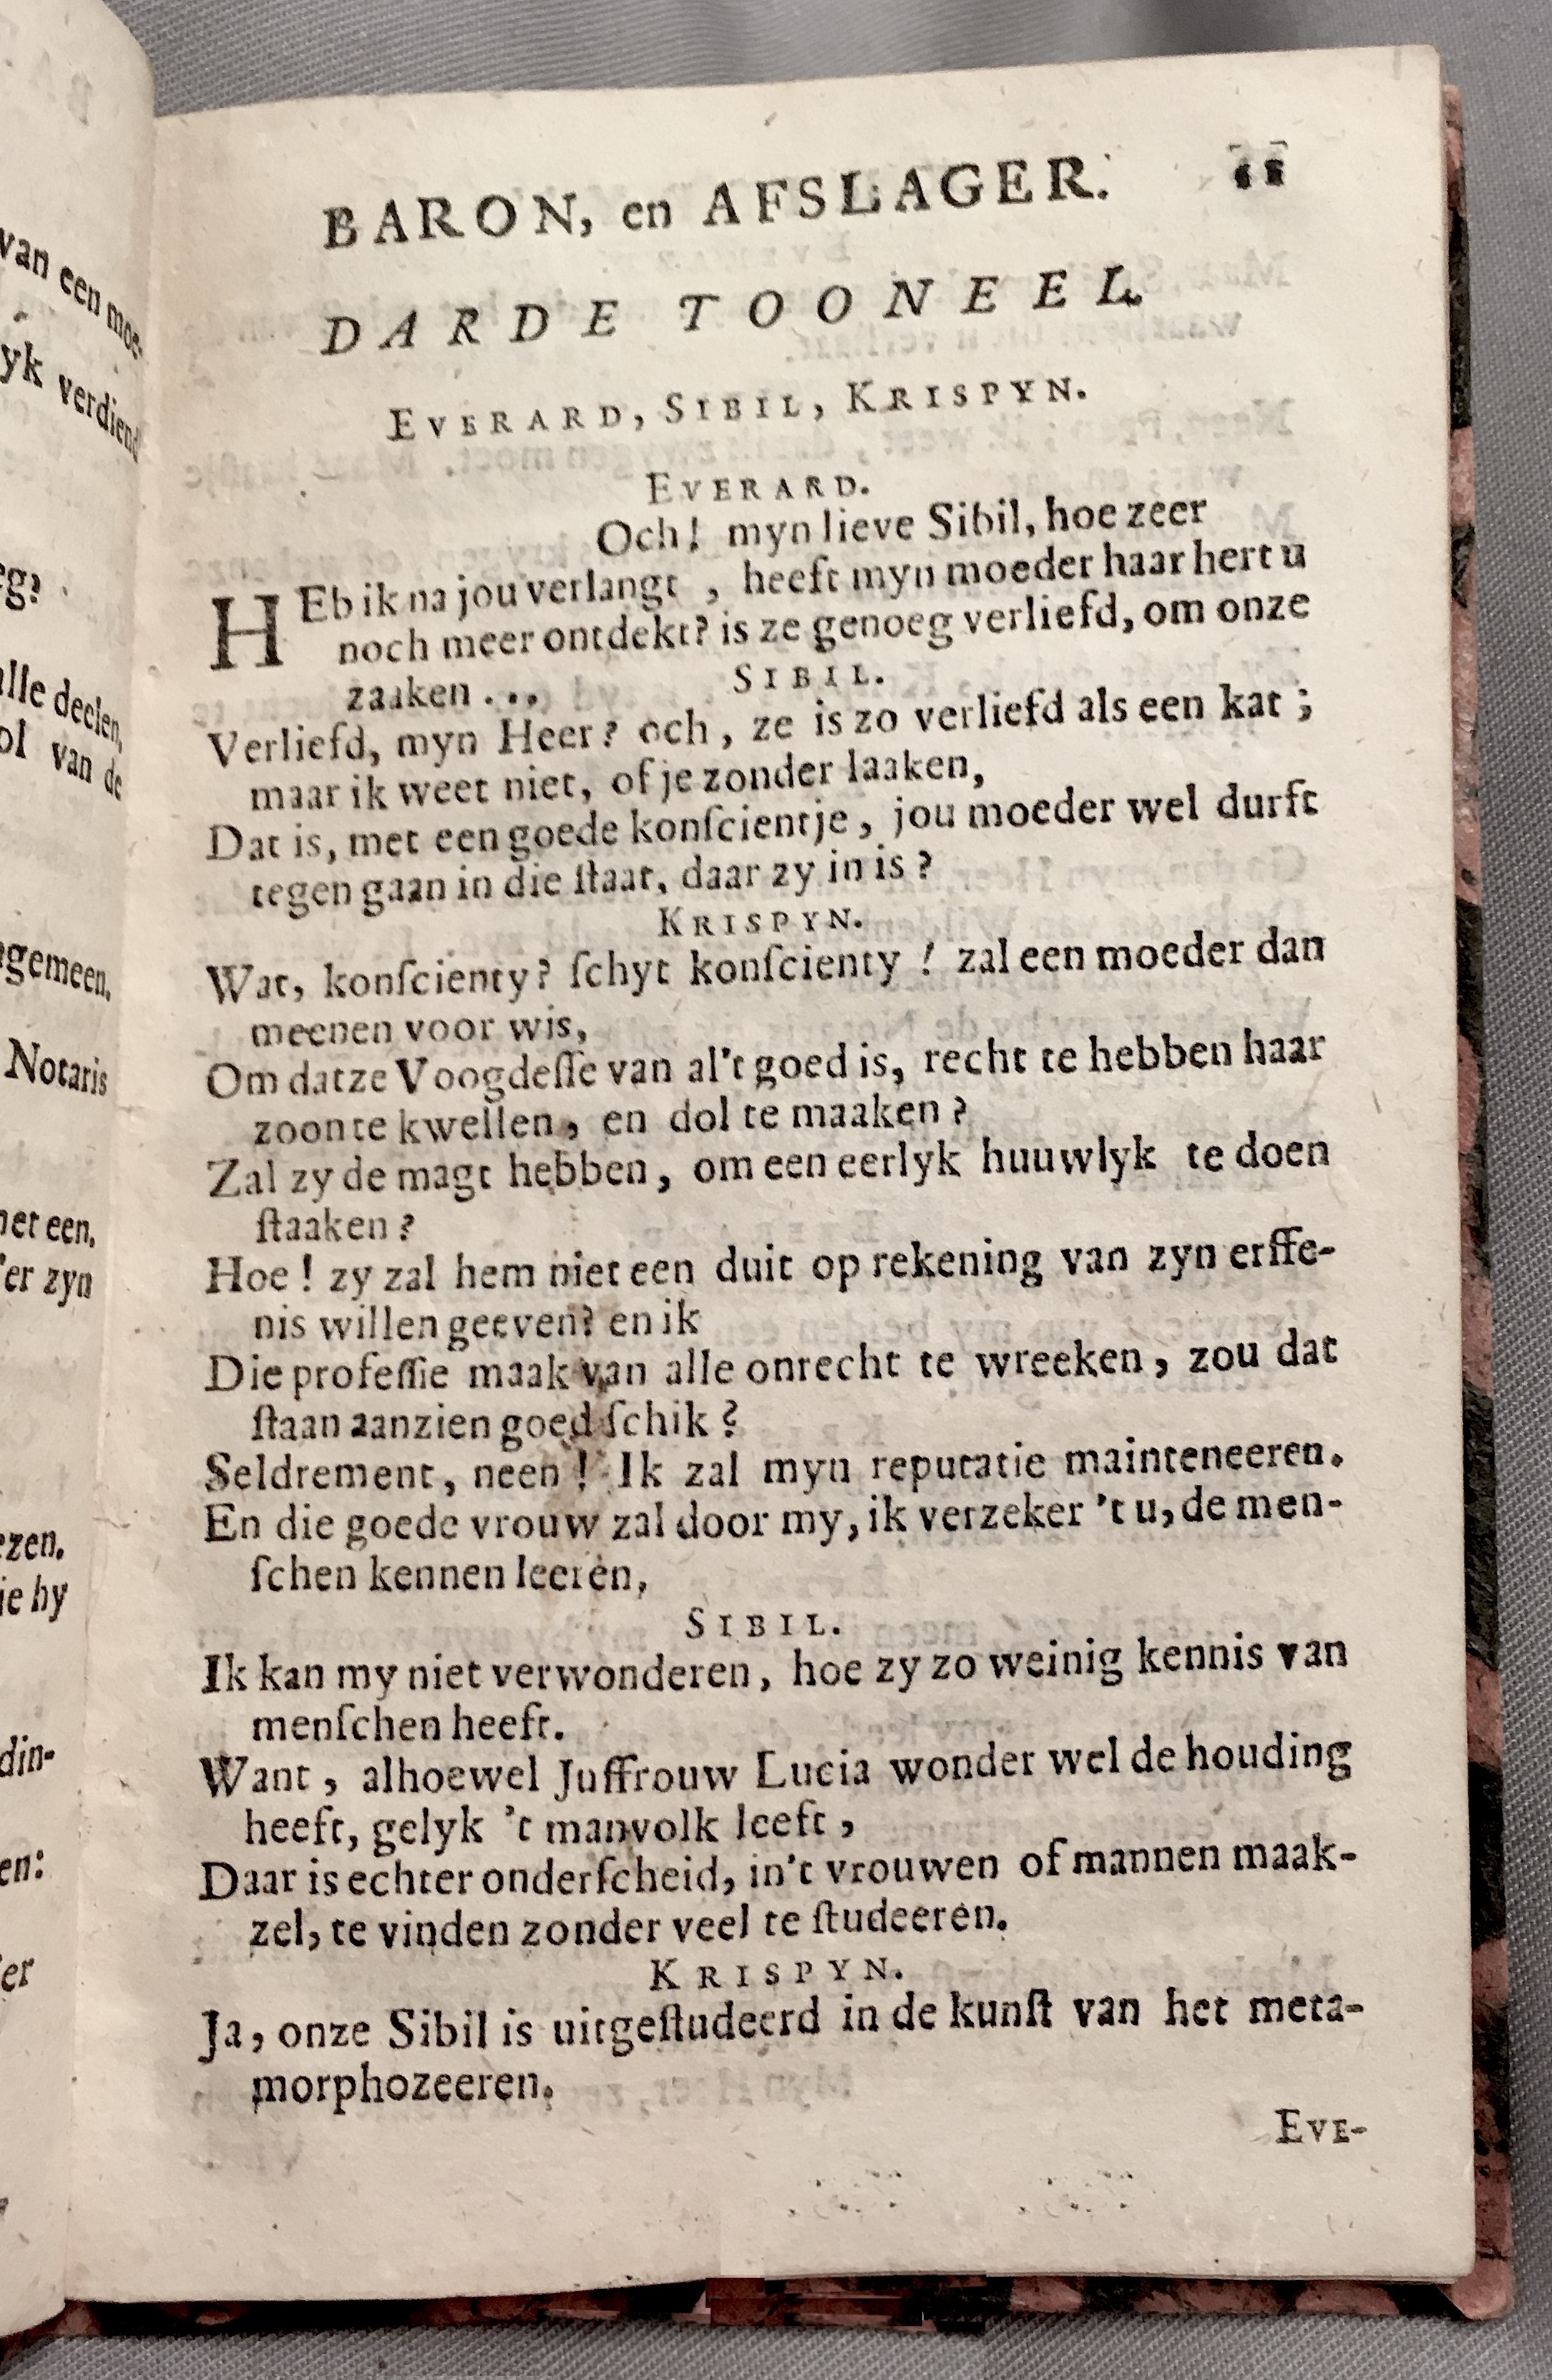 van een moe-
yk verdiend
eg?
alle deelen,
ol van de
gemeen.
Notaris
net een.
'er zyn
ezen.
ie hy
din-
en:
er
BARON, en AFSLAGER.
DARDE TOONEEL.
EVERARD, SIBIL, KRISPYN.
EVERARD.
Och! myn lieve Sibil, hoe zeer
HEb ik na jou verlangt, heeft myn moeder haar hert u
noch meer ontdekt? is ze genoeg verliefd, om onze
zaaken...
SIBIL.
Verliefd, myn Heer? och, ze is zo verliefd als een kat;
maar ik weet niet, of je zonder laaken,
Dat is, met een goede konſcientje, jou moeder wel durft
tegen gaan in die ſtaat, daar zy in is?
KRISPYN.
Wat, konſcienty? ſchyt konſcienty! zal een moeder dan
meenen voor wis,
Om datze Voogdeſſe van al't goed is, recht te hebben haar
zoon te kwellen, en dol te maaken?
Zal zy de magt hebben, om een eerlyk huuwlyk te doen
ſtaaken?
Hoe! zy zal hem niet een duit op rekening van zyn erffe-
nis willen geeven? en ik
Die profeſſie maak van alle onrecht te wreeken, zou dat
ſtaan aanzien goed ſchik?
Seldrement, neen! Ik zal myn reputatie mainteneeren.
En die goede vrouw zal door my, ik verzeker 't u, de men-
ſchen kennen leeren,
SIBIL.
Ik kan my niet verwonderen, hoe zy zo weinig kennis van
menſchen heeft.
Want, alhoewel Juffrouw Lucia wonder wel de houding
heeft, gelyk 't manvolk leeft,
Daar is echter onderſcheid, in't vrouwen of mannen maak-
zel, te vinden zonder veel te ſtudeeren.
KRISPYN.
Ja, onze Sibil is uitgeſtudeerd in de kunſt van het meta-
morphozeeren.
EVE-